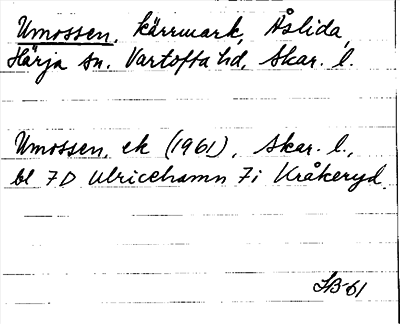 Umossen, kärrmark, Åslida,
Härja sn. Vartofta hd, Skar. l.
Umossen, ek (1961), Skar. l.,
bl 7D Ulricehamn 7i Kråkeryd.
SB-61